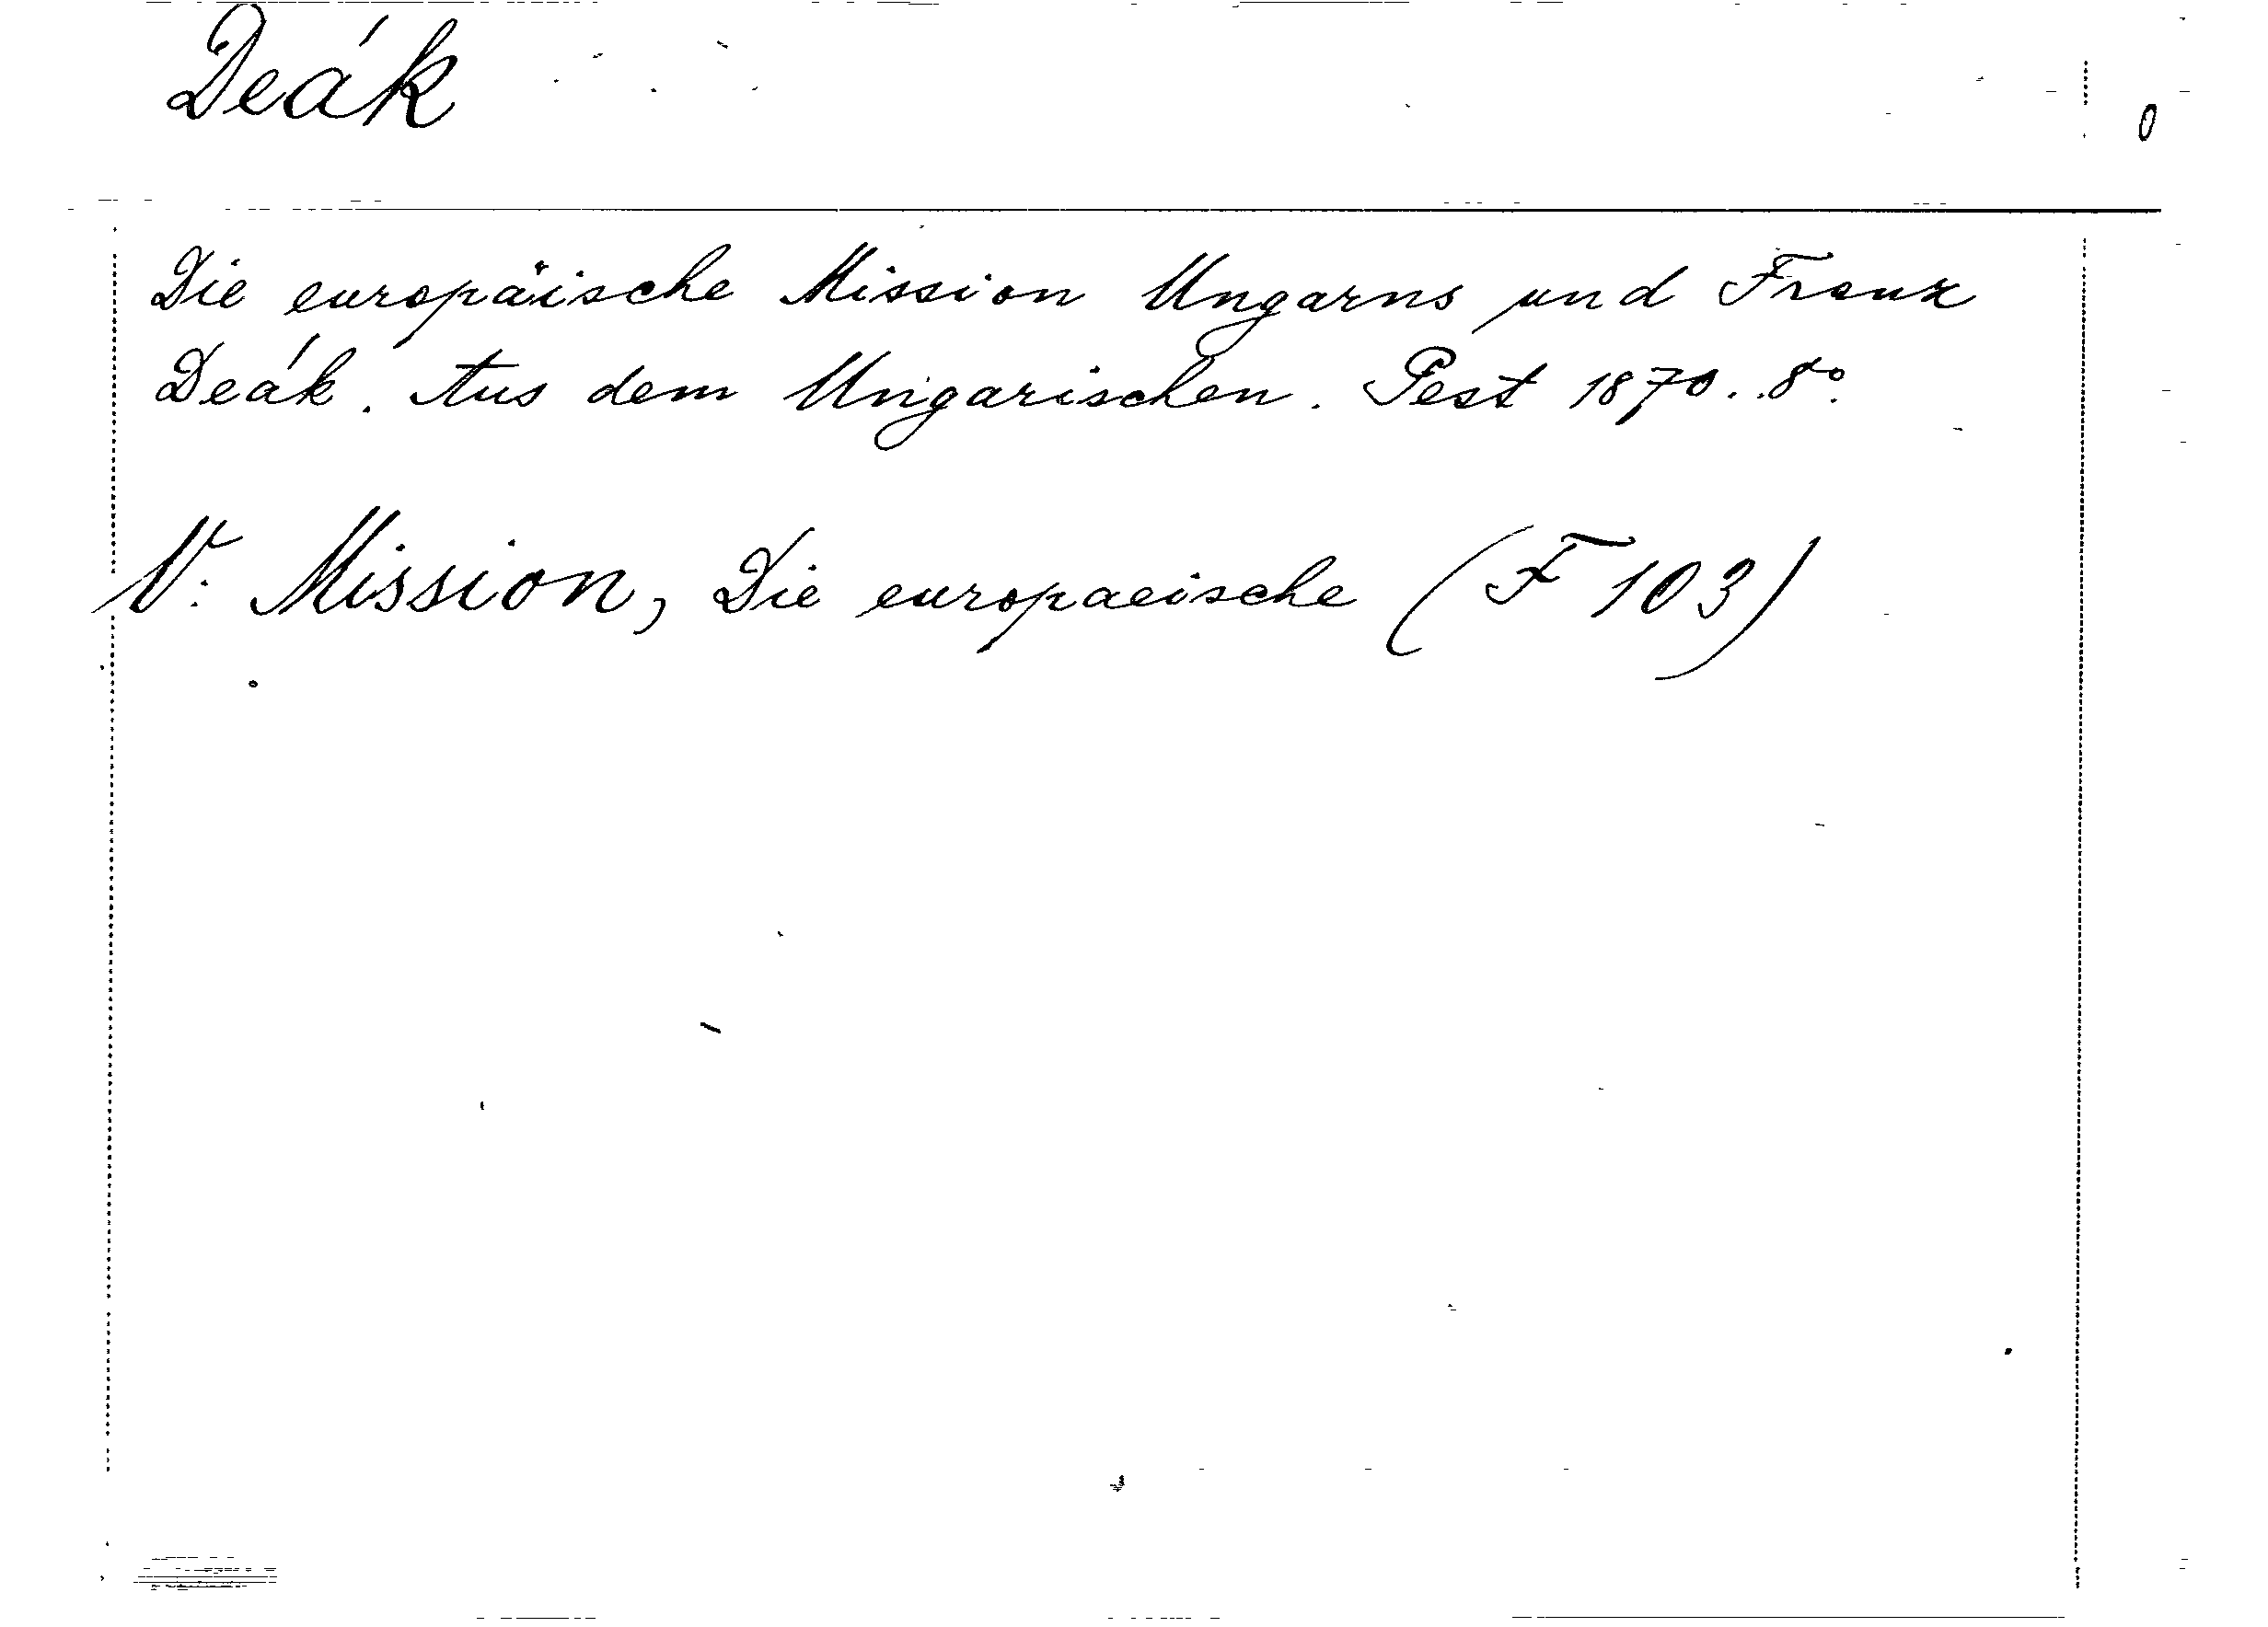 Deák
0
Die europäische Mission Ungarns und Franz
Deák. Aus dem Ungarischen. Pest 1870. 8°.
V: Mission, Die europaeische (F 103)